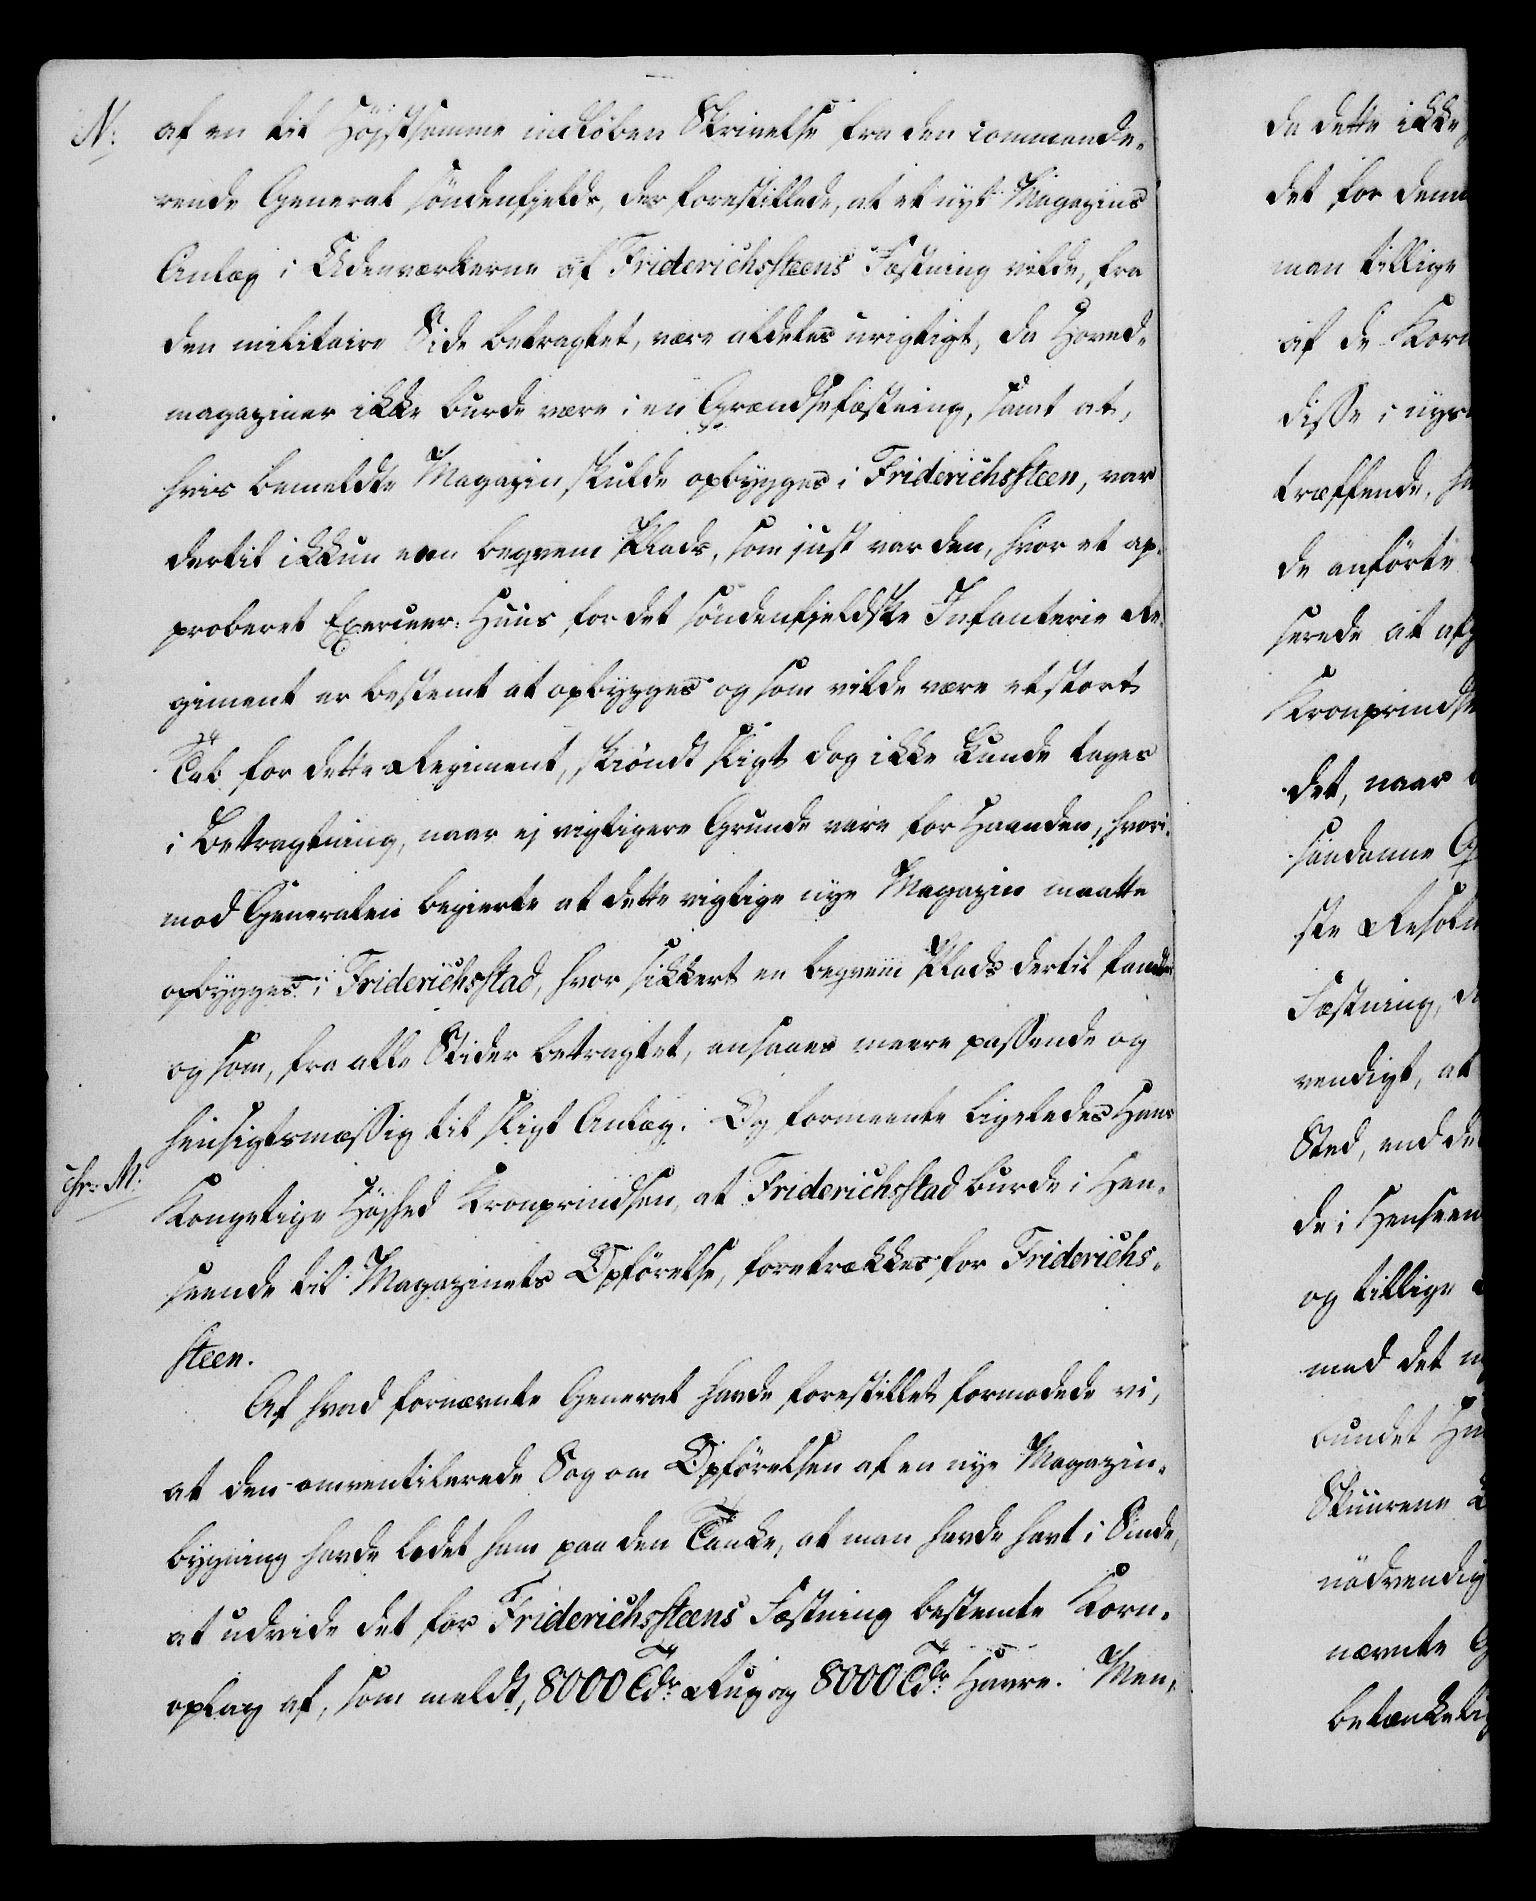 N: af en til Höjstsamme indløben Skrivelse fra den commande-
rende General søndenfjelds, der forestillede, at et nyt Magazins
Anlæg i Udenværkerne af Friderichssteens Fæstning vilde, fra
den militaire Side betragtet, være aldeles urigtigt, da Hoved-
magaziner ikke burde være i en Grændsefæstning, samt at,
hvis bemeldte Magazin skulde opbygges i Friderichssteen, var
dertil ikkun een beqvem Plads, som just var den, hvor et ap-
proberet Exerceer-Huus for det søndenfjeldske Infanterie Re-
giment er bestemt at opbygges og som vilde være et stort
Tab for dette Regiment, skiöndt sligt dog ikke kunde tages
i Betragtning, naar ej vigtigere Grunde vare for Haanden, hvori-
mod Generalen begierte at dette vigtige nye Magazin maatte
opbygges i Friderichsstad, hvor sikkert en beqvem Plads dertil fandtes
og som, fra alle Sider betragtet, ansaaes meere passende og
hensigtsmæssig til sligt Anlæg. Og formeente ligeledes Hans
Chr: M: Kongelige Höjhed Kronprindsen, at Friderichsstad burde i Hen-
seende til Magazinets Opförelse, foretrækkes for Friderichs-
steen.
Af hvad fornævnte General havde forestillet formodede vi,
at den omventilerede Sag om Opförelsen af en nye Magazin-
bygning havde ledet ham paa den Tanke, at man havde havt i Sinde,
at udvide det for Friderichssteens Fæstning bestemte Korn-
oplag af, som meldt, 8000 Tdr Rug og 8000 Tdr Havre. Men,
da dette ikke
det for denn
man tillige
af de Korn
disse i nys
træffende, ha
de anförte
serede at afg
Kronprindse
det, naar
saadanne G
ste Resolu
Fæstning, d
vendigt, at
Sted, end de
de i Henseen
og tillige
med det n
bundet H
Skuurene
nödvendig
nævnte G
betænkelig